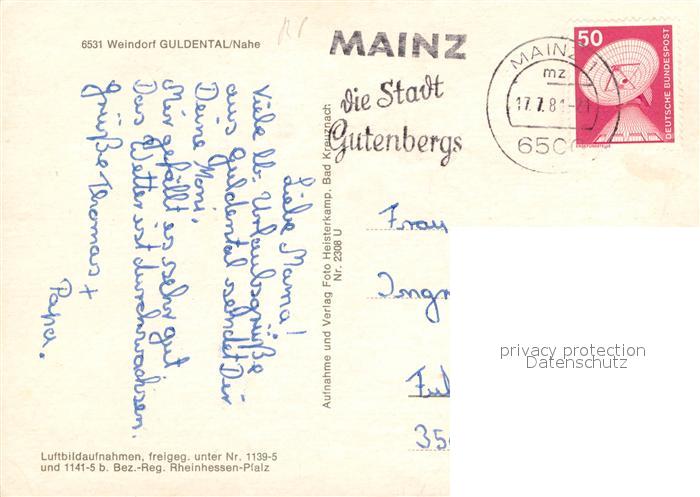 6531 Weindorf GULDENTAL/Nahe
MAINZ
die Stadt
Gutenbergs
MAINZ 1
mz
17.7.81-21
6500
50
DEUTSCHE BUNDESPOST
Liebe Mama!
Viele lb. Urlaubsgrüße
aus Guldental sendet Dir
Deine Moni,
Mir gefällt es sehr gut
Das Wetter ist durchwachsen.
Grüße Thomas +
Papa.
Aufnahme und Verlag Foto Heisterkamp, Bad Kreuznach
Nr. 2308 U
Frau
Ingr
Ful
350
privacy protection
Datenschutz
Luftbildaufnahmen, freigeg. unter Nr. 1139-5
und 1141-5 b. Bez.-Reg. Rheinhessen-Pfalz